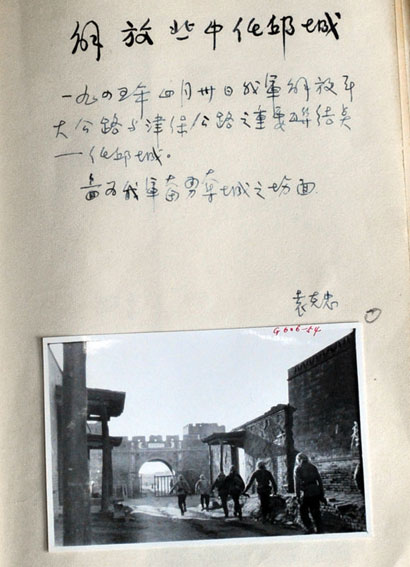 解放冀中任邱城
一九四五年四月卅日我軍解放平
大公路与津保公路之重要联结点
—任邱城。
啚为我軍奮勇夺城之场面
袁克忠
G606-54